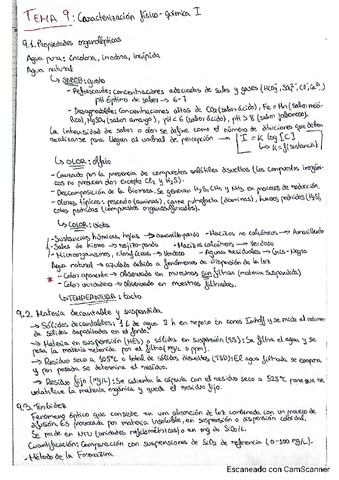 TEMA 9: Caracterización físico-química I
9.1. Propiedades organolépticas
Agua pura: incolora, inodora, insípida
Agua natural
↳ SABOR: gusto
- Refrescante: concentraciones adecuadas de sales y gases (HCO₃⁻, SO₄²⁻, Cl⁻, Ca²⁺)
pH óptimo de sabor → 6-7
- Desagradables: concentraciones altas de CO₂ (sabor ácido), Fe o Mn (sabor metálico), MgSO₄ (sabor amargo), pH < 6 (sabor ácido), pH > 8 (sabor jabonoso).
La intensidad de sabor o olor se define como el número de diluciones que deben
realizarse para llegar al umbral de percepción → I = K log [C]
↳ K = f(sustancia)
↳ OLOR: olfato
- Causado por la presencia de compuestos volátiles disueltos (los compuestos inorgánicos no producen olor excepto Cl₂ y H₂S).
- Descomposición de la biomasa. Se generan H₂S, CH₄ y NH₃ en procesos de reducción.
- Olores típicos: pescado (aminas), carne putrefacta (diaminas), huevos podridos (H₂S),
coles podridas (compuestos organosulfurados).
↳ COLOR: vista
- Sustancias húmicas, hojas → amarillo-pardo - Macizos no calcáreos → Amarillento
- Sales de hierro → rojizo-pardo - Macizos calcáreos → Verdoso
- Microorganismos, clorofíceas → Verdoso - Aguas Residuales → Gris-Negro
Agua natural → azulado debido a fenómenos de dispersión de la luz
- Color aparente → Observado en muestras sin filtrar (materia suspendida)
- Color verdadero → observado en muestras filtradas.
↳ TEMPERATURA: tacto
9.2. Materia decantable y suspendida
→ Sólidos decantables: 1 L de agua 2 h en reposo en conos Imhoff y se mide el volumen
de sólidos depositados en el fondo.
→ Materia en suspensión (MES) o sólidos en suspensión (SS): Se filtra el agua y se
pesa la materia retenida por el filtro (mg/L o ppm).
→ Residuo seco a 105°C o total de sólidos disueltos (TSD): El agua filtrada se evapora
y por pesada se determina el residuo.
→ Residuo fijo (mg/L): Se calienta la cápsula con el residuo seco a 525°C para que se
volatilice la materia orgánica y quede el residuo fijo.
9.3. Turbidez
Fenómeno óptico que consiste en una absorción de luz combinada con un proceso de
difusión. Es provocada por materia insoluble, en suspensión o dispersión coloidal.
Se mide en NTU (unidades nefelométricas) o en mg de SiO₂/L.
Cuantificación: Comparación con suspensiones de SiO₂ de referencia (0-100 mg/L).
- Método de la Formazina
Escaneado con CamScanner